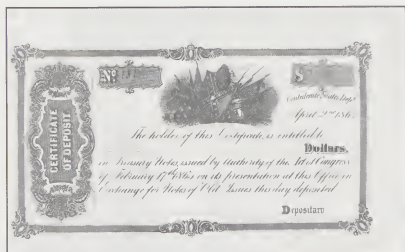 CERTIFICATE
OF DEPOSIT
No
$
April 2nd 186
The holder of this Certificate, is entitled to
Dollars,
in Treasury Notes, issued by Authority of the Act of Congress
of February 17th on its presentation at this Office in
Exchange for Notes of Old Issues this day deposited
Depositary